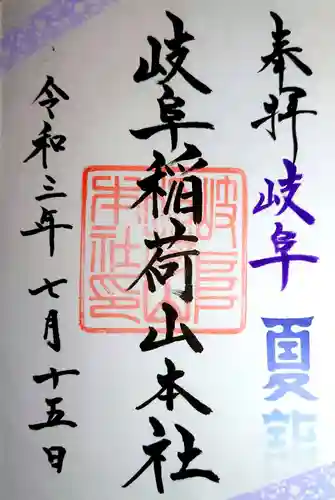 奉拝
岐阜
夏詣
岐阜稲荷山本社
令和三年七月十五日